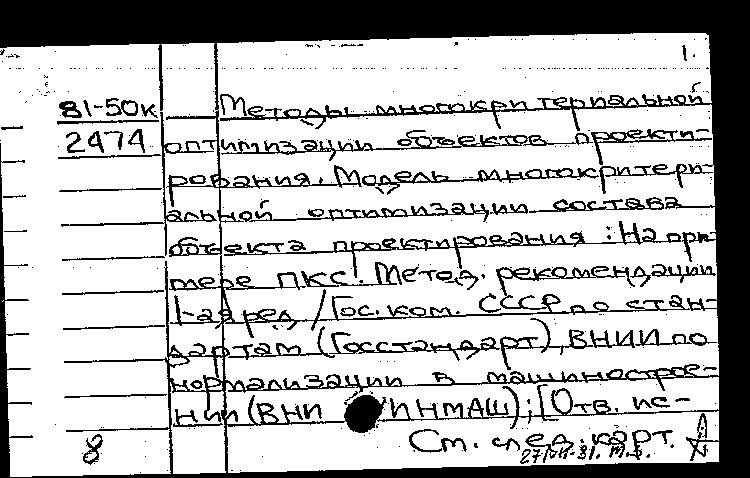 1.
81-50к Методы многокритериальной
2474 оптимизации объектов проекти-
рования. Модель многокритери-
альной оптимизации состава
объекта проектирования : На при-
мере ПКС. Метод. рекомендации
1-ая ред / Гос. ком. СССР по стан-
дартам (Госстандарт), ВНИИ по
нормализации в машинострое-
нии (ВНИ ИНМАШ); [Отв. ис-
8 См. след. карт.